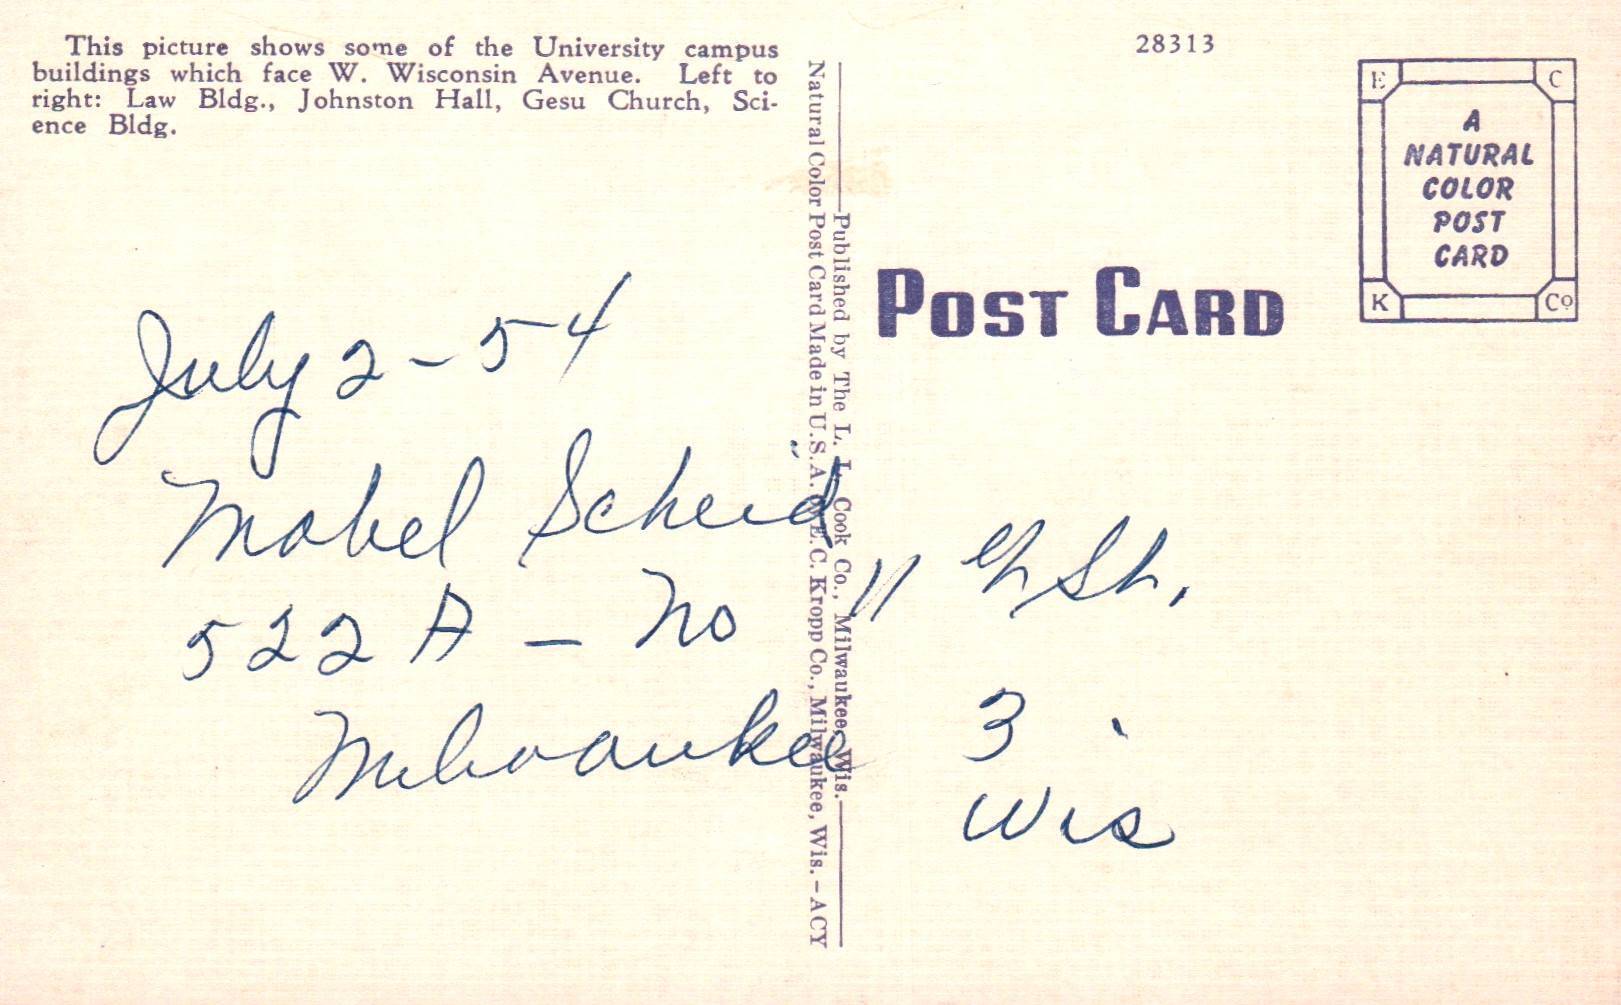 This picture shows some of the University campus
buildings which face W. Wisconsin Avenue. Left to
right: Law Bldg., Johnston Hall, Gesu Church, Sci-
ence Bldg.
July 2 - 54
Mabel Scheid
522 A - No 11 th St.
Milwaukee 3
Wis
Published by The L. L. Cook Co., Milwaukee, Wis.
Natural Color Post Card Made in U.S.A. by E. C. Kropp Co., Milwaukee, Wis. - ACY
28313
POST CARD
E C
A
NATURAL
COLOR
POST
CARD
K Co